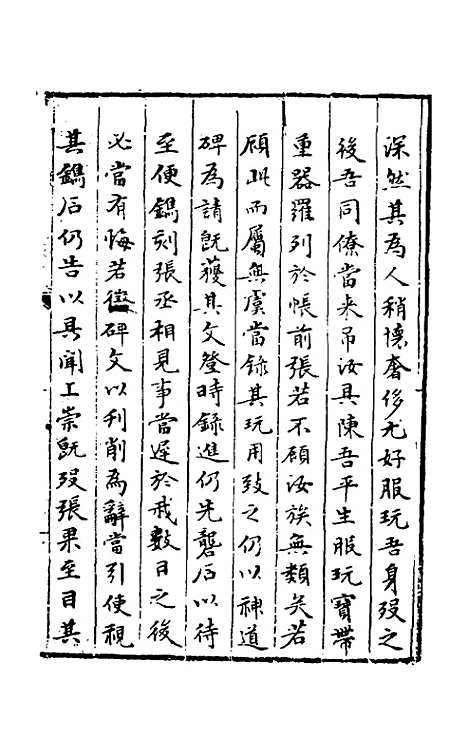 深然其為人稍懷奢侈尤好服玩吾身歿之
後吾同僚當来吊汝具陳吾平生服玩寶帶
重器羅列於帳前張若不顧汝族無類矣若
顧此而屬無虞當录其玩用致之仍以神道
碑為請既獲其文登時録進仍先礱石以待
至便鐫刻張丞相見事當遲於我數日之後
必當有悔若徵碑文以刋削為辭當引使視
其鐫石仍告以具聞上崇既歿張果至目其